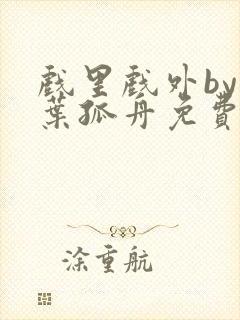 戲里戲外by
葉孤舟免費
涂重航